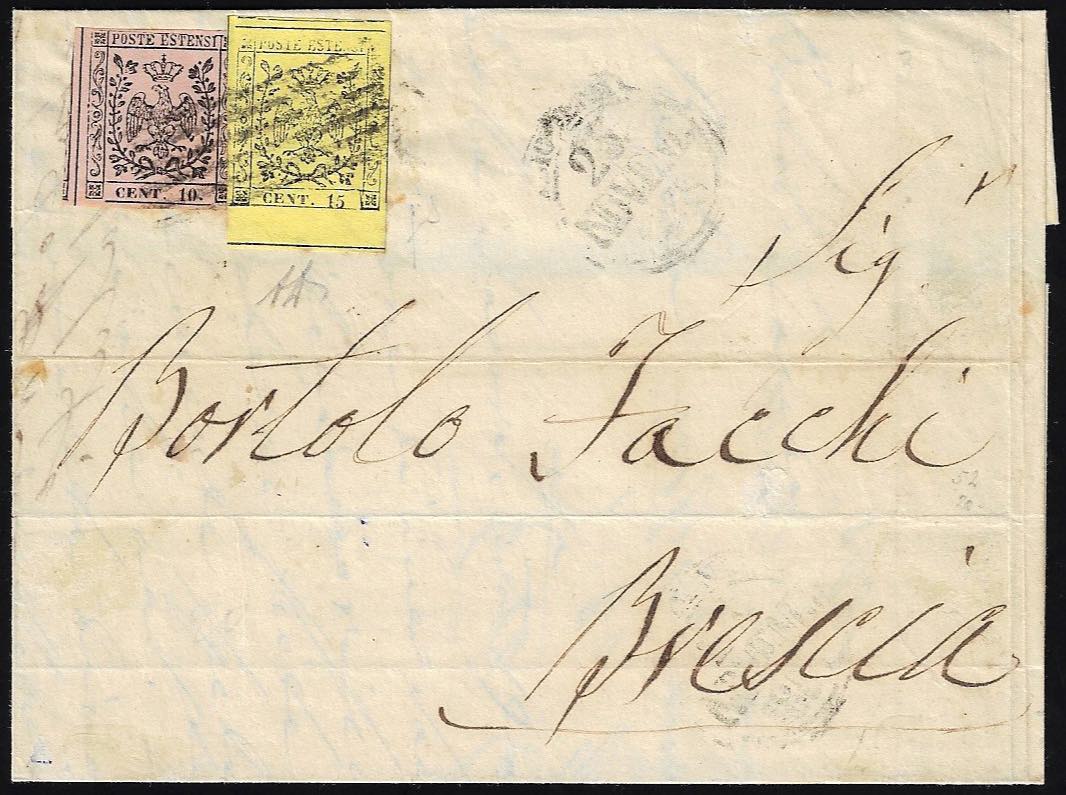 POSTE ESTENSI
CENT. 10.
POSTE ESTENSI
CENT. 15
23
Sigʳ
Bortolo Facchi
Brescia
52